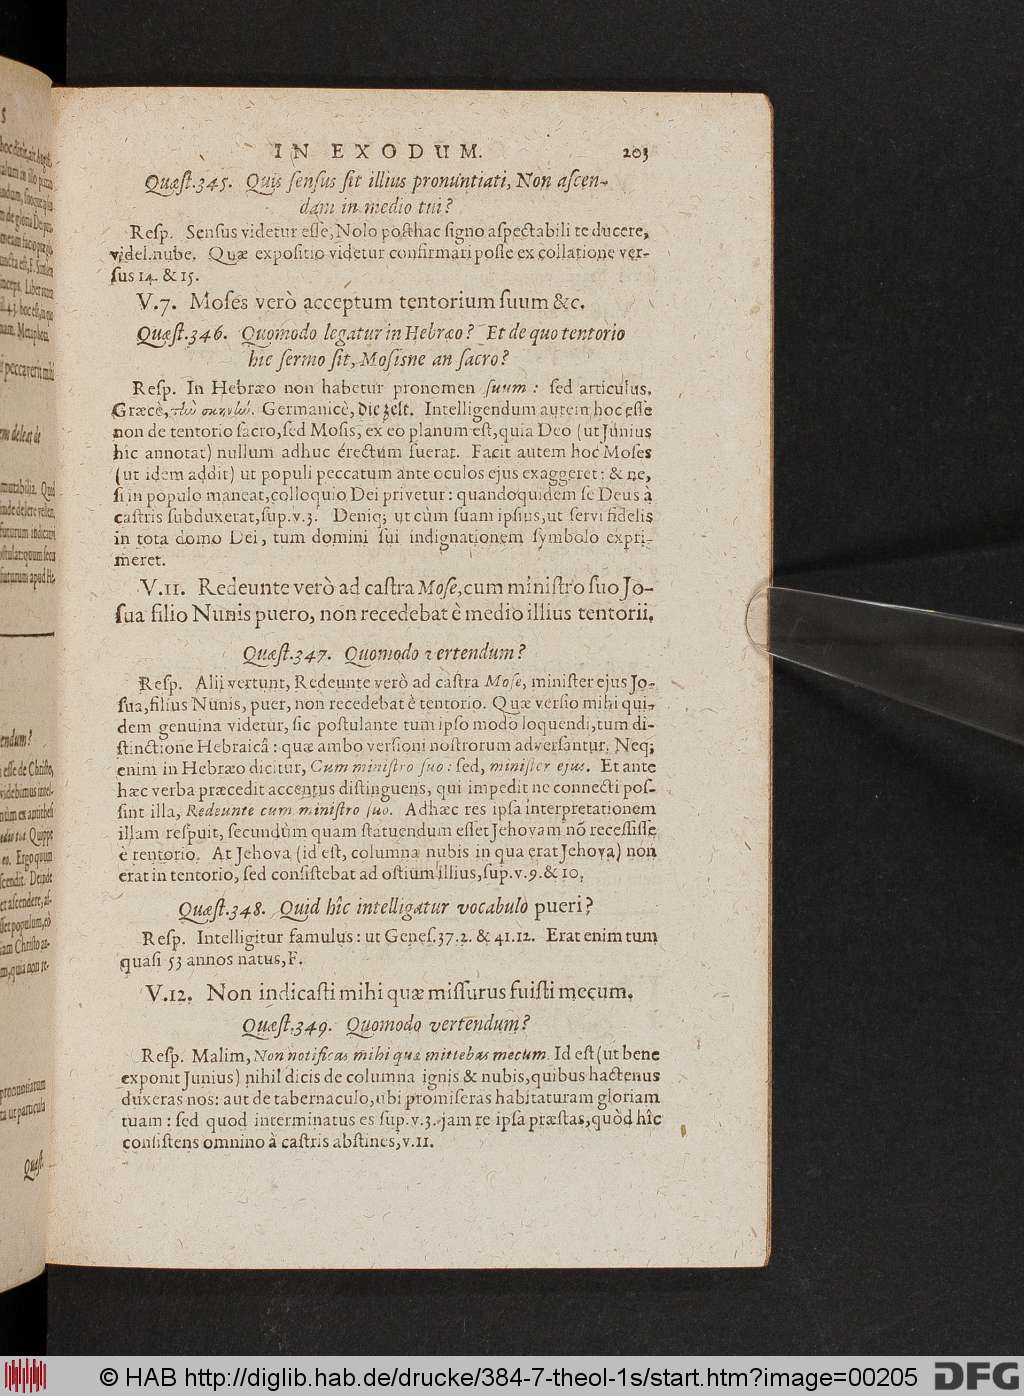 IN EXODUM. 203
Quæſt.345. Quis ſenſus ſit illius pronuntiati, Non aſcen-
dam in medio tui?
Reſp. Senſus videtur eſſe, Nolo poſthac ſigno aſpectabili te ducere,
videl. nube. Quæ expoſitio videtur confirmari poſſe ex collatione ver-
ſus 14. & 15.
V.7. Moſes verò acceptum tentorium ſuum &c.
Quæſt.346. Quomodo legatur in Hebræo? Et de quo tentorio
hic ſermo ſit, Moſisne an ſacro?
Reſp. In Hebræo non habetur pronomen ſuum: ſed articulus.
Græcè, τὴν σκηνὴν. Germanicè, die zelt. Intelligendum autem hoc eſſe
non de tentorio ſacro, ſed Moſis, ex eo planum eſt, quia Deo (ut Junius
hîc annotat) nullum adhuc érectum fuerat. Facit autem hoc Moſes
(ut idem addit) ut populi peccatum ante oculos ejus exaggeret: & ne,
ſi in populo maneat, colloquio Dei privetur: quandoquidem ſe Deus à
caſtris ſubduxerat, ſup.v.3. Deniq; ut cùm ſuam ipſius, ut ſervi fidelis
in tota domo Dei, tum domini ſui indignationem ſymbolo expri-
meret.
V.11. Redeunte verò ad caſtra Moſe, cum miniſtro ſuo Jo-
ſua filio Nunis puero, non recedebat è medio illius tentorii.
Quæſt.347. Quomodo vertendum?
Reſp. Alii vertunt, Redeunte verò ad caſtra Moſe, miniſter ejus Jo-
ſua, filius Nunis, puer, non recedebat è tentorio. Quæ verſio mihi qui-
dem genuina videtur, ſic poſtulante tum ipſo modo loquendi, tum di-
ſtinctione Hebraicâ: quæ ambo verſioni noſtrorum adverſantur. Neq;
enim in Hebræo dicitur, Cum miniſtro ſuo: ſed, miniſter ejus. Et ante
hæc verba præcedit accentus diſtinguens, qui impedit ne connecti poſ-
ſint illa, Redeunte cum miniſtro ſuo. Adhæc res ipſa interpretationem
illam reſpuit, ſecundùm quam ſtatuendum eſſet Jehovam nõ receſſiſſe
è tentorio. At Jehova (id eſt, columna nubis in qua erat Jehova) non
erat in tentorio, ſed conſiſtebat ad oſtium illius, ſup.v.9.& 10.
Quæſt.348. Quid hîc intelligatur vocabulo pueri?
Reſp. Intelligitur famulus: ut Geneſ.37.2. & 41.12. Erat enim tum
quaſi 53 annos natus, F.
V.12. Non indicaſti mihi quæ miſſurus fuiſti mecum.
Quæſt.349. Quomodo vertendum?
Reſp. Malim, Non notificas mihi quæ mittebas mecum. Id eſt (ut bene
exponit Junius) nihil dicis de columna ignis & nubis, quibus hactenus
duxeras nos: aut de tabernaculo, ubi promiſeras habitaturam gloriam
tuam: ſed quod interminatus es ſup.v.3. jam re ipſa præſtas, quòd hîc
conſiſtens omnino à caſtris abſtines, v.11.
© HAB http://diglib.hab.de/drucke/384-7-theol-1s/start.htm?image=00205
DFG